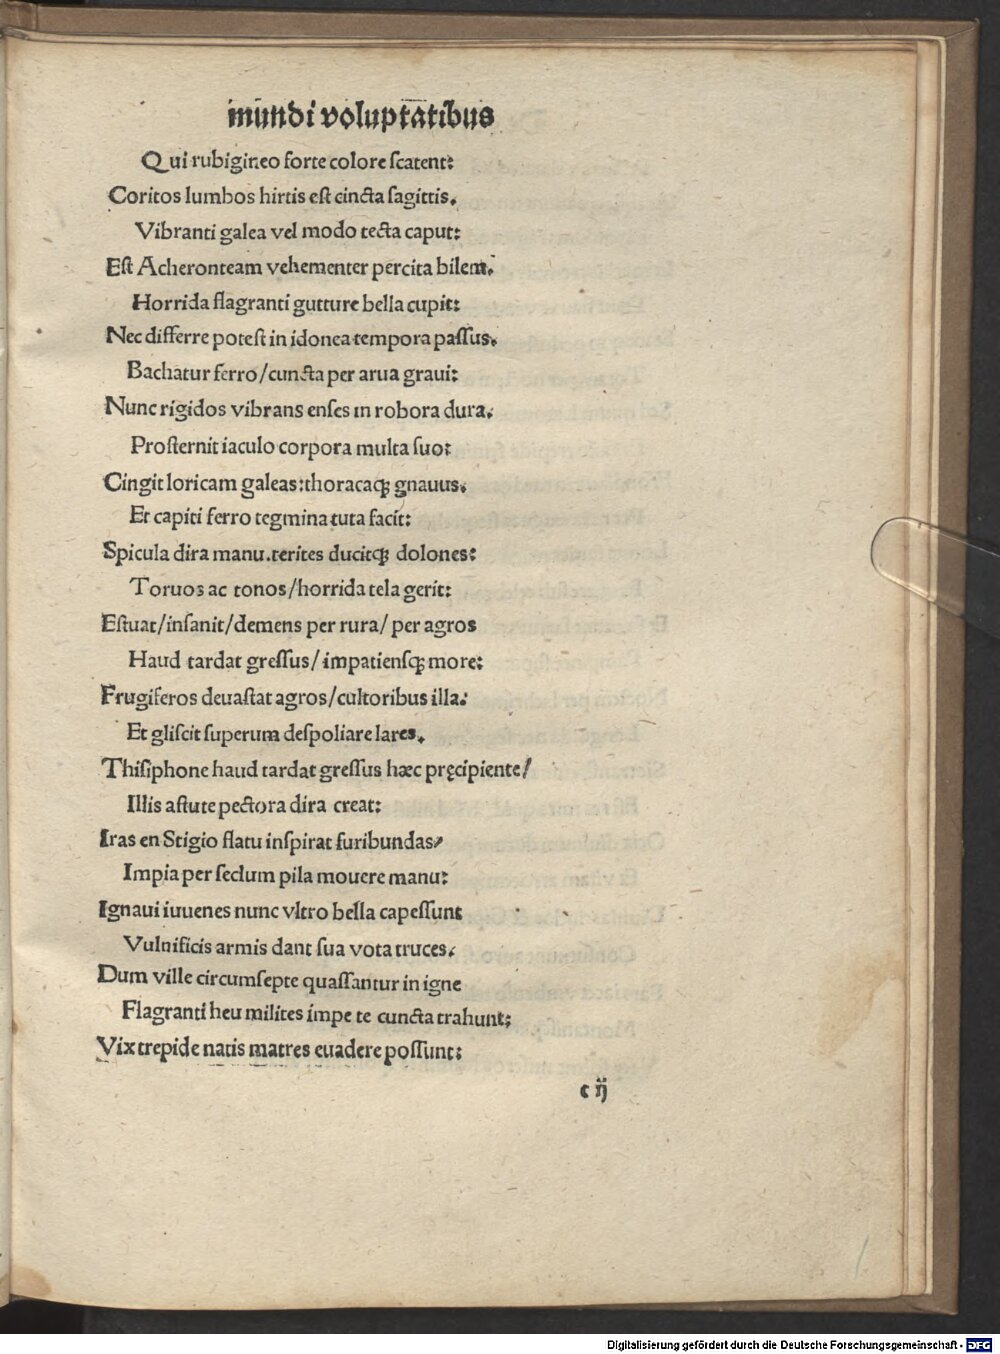 mundi voluptatibus
Qui rubigineo forte colore ſcatent:
Coritos lumbos hirtis eſt cincta ſagittis.
Vibranti galea vel modo tecta caput:
Eſt Acheronteam vehementer percita bilem.
Horrida flagranti gutture bella cupit:
Nec differre poteſt in idonea tempora paſſus.
Bachatur ferro/cuncta per arua graui:
Nunc rigidos vibrans enſes in robora dura.
Proſternit iaculo corpora multa ſuo:
Cingit loricam galeas:thoracaqꝫ gnauus.
Et capiti ferro tegmina tuta facit:
Spicula dira manu.terites ducitqꝫ dolones:
Toruos ac tonos/horrida tela gerit:
Eſtuat/inſanit/demens per rura/per agros
Haud tardat greſſus/impatienſqꝫ more:
Frugiferos deuaſtat agros/cultoribus illa:
Et gliſcit ſuperum deſpoliare lares.
Thiſiphone haud tardat greſſus hæc pręcipiente/
Illis aſtute pectora dira creat:
Iras en Stigio flatu inſpirat furibundas/
Impia per ſeclum pila mouere manu:
Ignaui iuuenes nunc vltro bella capeſſunt
Vulnificis armis dant ſua vota truces.
Dum ville circumſepte quaſſantur in igne
Flagranti heu milites impete cuncta trahunt;
Vix trepide natis matres euadere poſſunt:
c ij
Digitalisierung gefördert durch die Deutsche Forschungsgemeinschaft - DFG